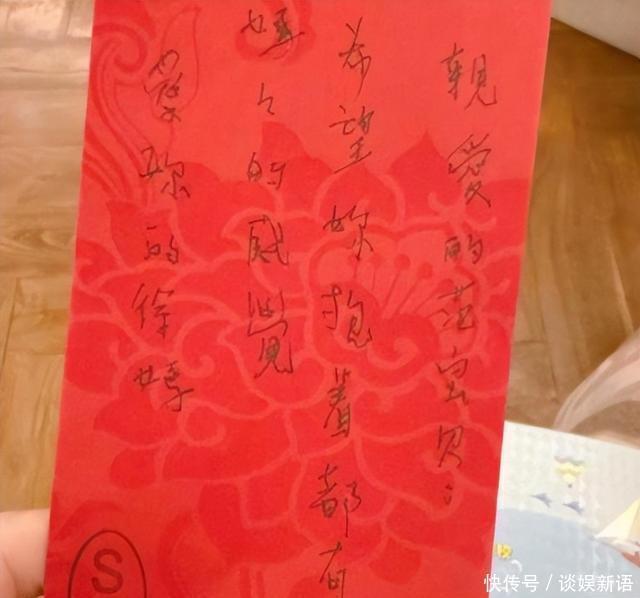 親愛的范宝贝：
希望妳抱著都有
媽々的感覺
愛妳的徐媽
S
快传号／谈娱新语